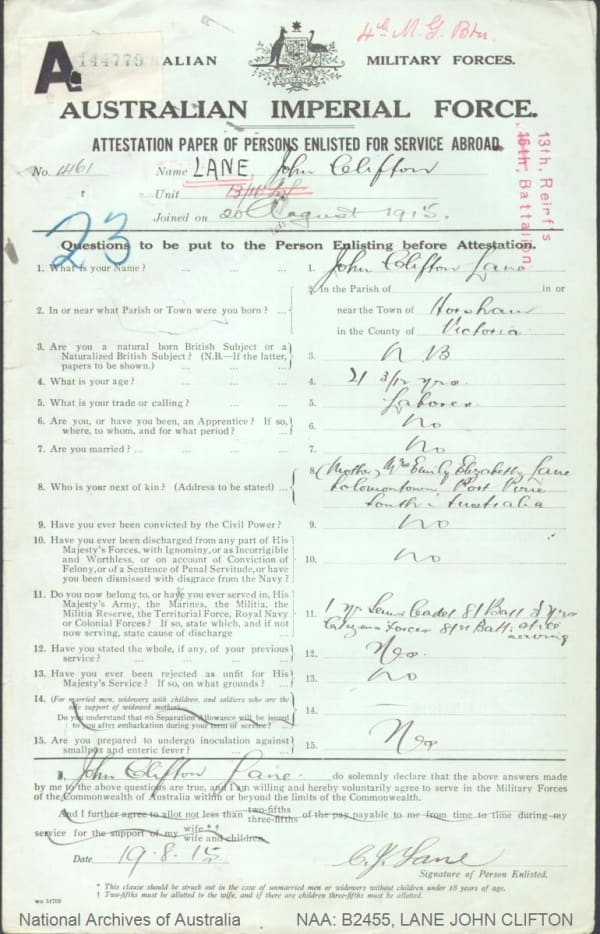 A. 144779
AUSTRALIAN MILITARY FORCES.
4th M. G. Btn
AUSTRALIAN IMPERIAL FORCE.
ATTESTATION PAPER OF PERSONS ENLISTED FOR SERVICE ABROAD.
No. 1461 Name LANE, John Clifton
Unit 13/16 Inf
Joined on 20 August 1915.
13th, Reinf's
16th, Battalion
23
Questions to be put to the Person Enlisting before Attestation.
1. What is your Name? ... ... ... 1. John Clifton Lane
2. In or near what Parish or Town were you born? ... 2. In the Parish of in or
near the Town of Horsham
in the County of Victoria
3. Are you a natural born British Subject or a
Naturalized British Subject? (N.B.—If the latter,
papers to be shown.) ... ... ... 3. N B
4. What is your age? ... ... ... 4. 21 3/12 yrs
5. What is your trade or calling? ... ... 5. Laborer
6. Are you, or have you been, an Apprentice? If so,
where, to whom, and for what period? ... ... 6. No
7. Are you married? ... ... ... ... 7. No
8. Who is your next of kin? (Address to be stated) ... 8. (Mother) Mrs Emily Elizabeth Lane
Solomontown Port Pirie
South Australia
9. Have you ever been convicted by the Civil Power? 9. No
10. Have you ever been discharged from any part of His
Majesty's Forces, with Ignominy, or as Incorrigible
and Worthless, or on account of Conviction of
Felony, or of a Sentence of Penal Servitude, or have
you been dismissed with disgrace from the Navy? 10. No
11. Do you now belong to, or have you ever served in, His
Majesty's Army, the Marines, the Militia, the
Militia Reserve, the Territorial Force, Royal Navy
or Colonial Forces? If so, state which, and if not
now serving, state cause of discharge ... 11. 1 yr Senior Cadet 81 Batt 3 yrs
Citizens Forces 81st Batt still
serving
12. Have you stated the whole, if any, of your previous
service? ... ... ... ... 12. Yes.
13. Have you ever been rejected as unfit for His
Majesty's Service? If so, on what grounds? ... 13. No
14. (For married men, widowers with children, and soldiers who are the
sole support of widowed mother)
Do you understand that no Separation Allowance will be issued
to you after embarkation during your term of service? 14.
15. Are you prepared to undergo inoculation against
smallpox and enteric fever? ... ... 15. Yes
I, John Clifton Lane do solemnly declare that the above answers made
by me to the above questions are true, and I am willing and hereby voluntarily agree to serve in the Military Forces
of the Commonwealth of Australia within or beyond the limits of the Commonwealth.
And I further agree to allot not less than two-fifths three-fifths of the pay payable to me from time to time during my
service for the support of my wife*† wife and children.
Date 19.8.15 C. J. Lane
Signature of Person Enlisted.
* This clause should be struck out in the case of unmarried men or widowers without children under 18 years of age.
† Two-fifths must be allotted to the wife, and if there are children three-fifths must be allotted.
National Archives of Australia NAA: B2455, LANE JOHN CLIFTON